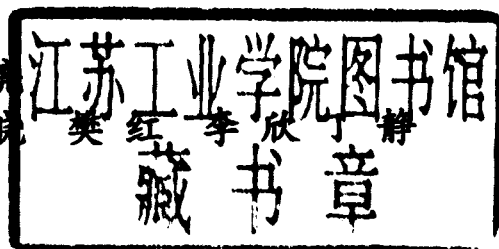 江苏工业学院图书馆
樊红 李欣 丁静
藏书章